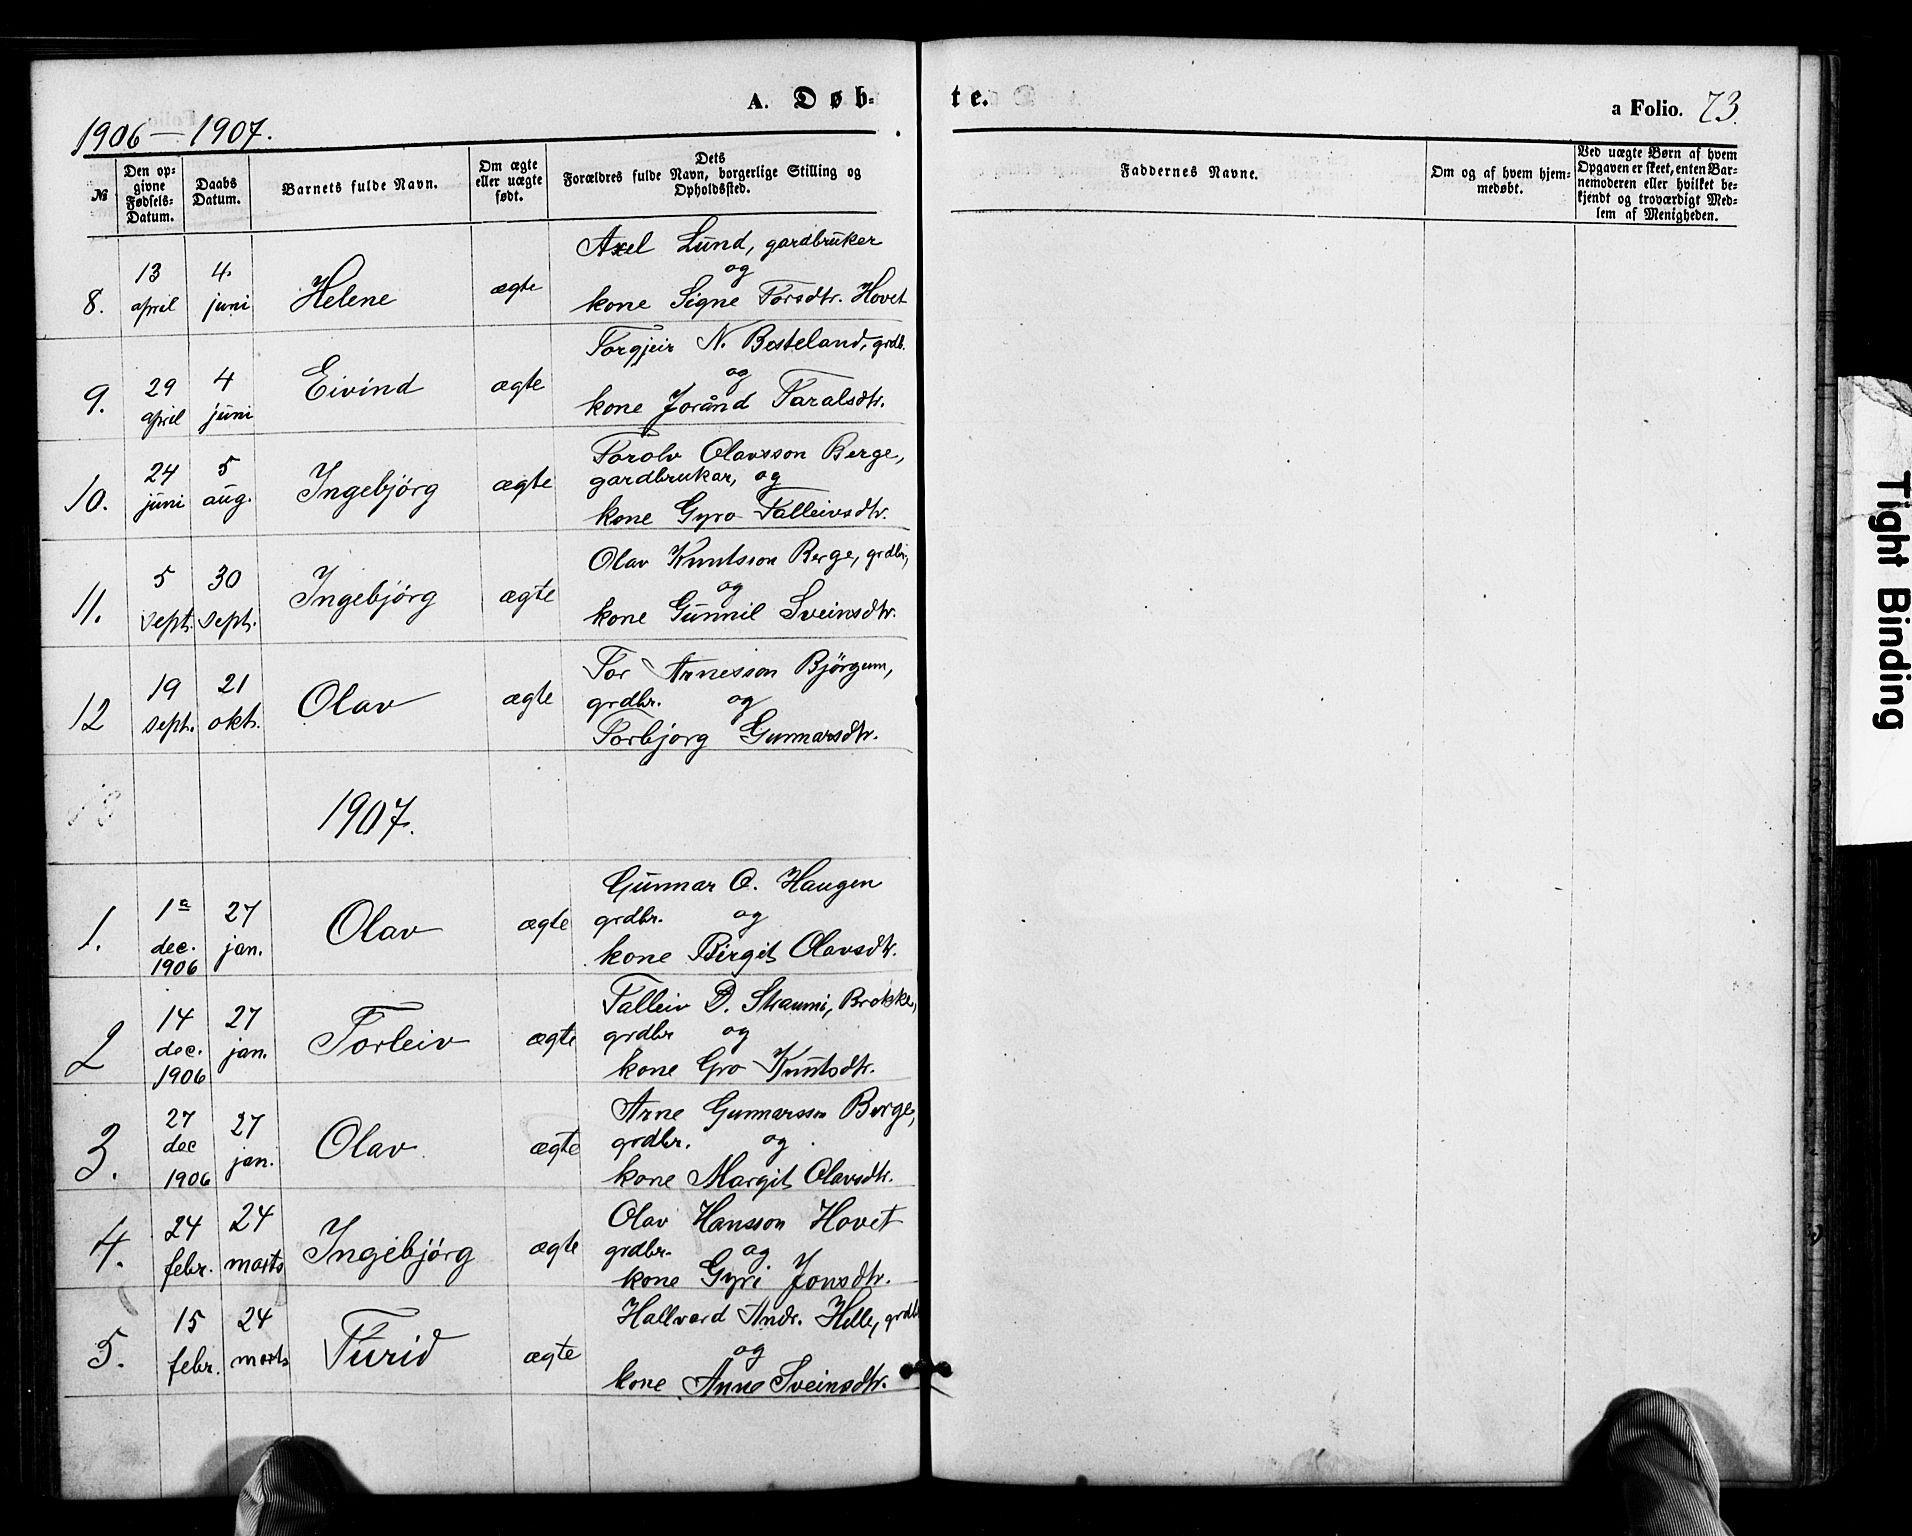 A. Døb-
te.
a Folio. 73.
1906 - 1907.
№
Den op-
givne
Fødsels-
Datum.
Daabs
Datum.
Barnets fulde Navn.
Om ægte
eller uægte
født.
Dets
Forældres fulde Navn, borgerlige Stilling og
Opholdssted.
Faddernes Navne.
Om og af hvem hjem-
medøbt.
Ved uægte Børn af hvem
Opgaven er skeet, enten Bar-
nemoderen eller hvilket be-
kjendt og troværdigt Med-
lem af Menigheden.
8.
13
april
4.
juni
Helene
ægte
Axel Lund, gardbruker
og
kone Signe Torsdtr. Hovet
9.
29
april
4
juni
Eivind
ægte
Torgjeir N. Besteland, grdb.
og
kone Jorånd Taralsdtr.
10.
24
juni
5
aug.
Ingebjörg
ægte
Torolv Olavsson Berge,
gardbrukar, og
kone Gyro Talleivsdtr.
11.
5
sept.
30
sept.
Ingebjörg
ægte
Olav Knutsson Berge, grdbr,
og
kone Gunnil Sveinsdtr.
12
19
sept.
21
okt.
Olav
ægte
Tor Arnesson Björgum,
grdbr. og
Torbjorg Gunnarsdtr.
1907.
1.
1ª
dec.
1906
27
jan.
Olav
ægte
Gunnar O. Haugen
grdbr. og
kone Birgit Olavsdtr.
2
14
dec.
1906
27
jan.
Torleiv
ægte
Talleiv D. Straumi, Brokke,
grdbr og
kone Gro Knutsdtr.
3.
27
dec
1906
27
jan.
Olav
ægte
Arne Gunnarsson Berge,
grdbr. og
kone Margit Olavsdtr.
4.
24
febr.
24
marts
Ingebjörg
ægte
Olav Hansson Hovet
grdbr. og
kone Gyri Jonsdtr.
5.
15
febr.
24
marts
Turid
ægte
Hallvard Andr. Helle, grdb
og
kone Anne Sveinsdtr.
Tight Binding